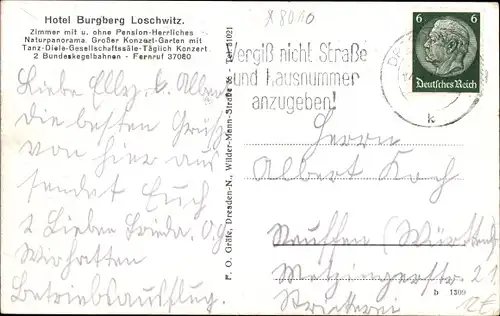 Hotel Burgberg Loschwitz.
Zimmer mit u. ohne Pension-Herrliches
Naturpanorama. Großer Konzert-Garten mit
Tanz-Diele-Gesellschaftssäle-Täglich Konzert
2 Bundeskegelbahnen - Fernruf 37080
Liebe Elly, b. Albert
die besten Grüße
von hier aus
sendet Euch
2 Lieben Frieda.
Wir hatten
Betriebsausflug.
F. O. Gräfe, Dresden-N., Wilder-Mann-Straße 36 - Tel. 51021
X 8010
Vergiß nicht Straße
und Hausnummer
anzugeben!
6 6
Deutsches Reich
k
Herrn
Albert Koch
Neuffen (Württbg)
Metzingerstr 21.
Strickerei
b 1309
12€